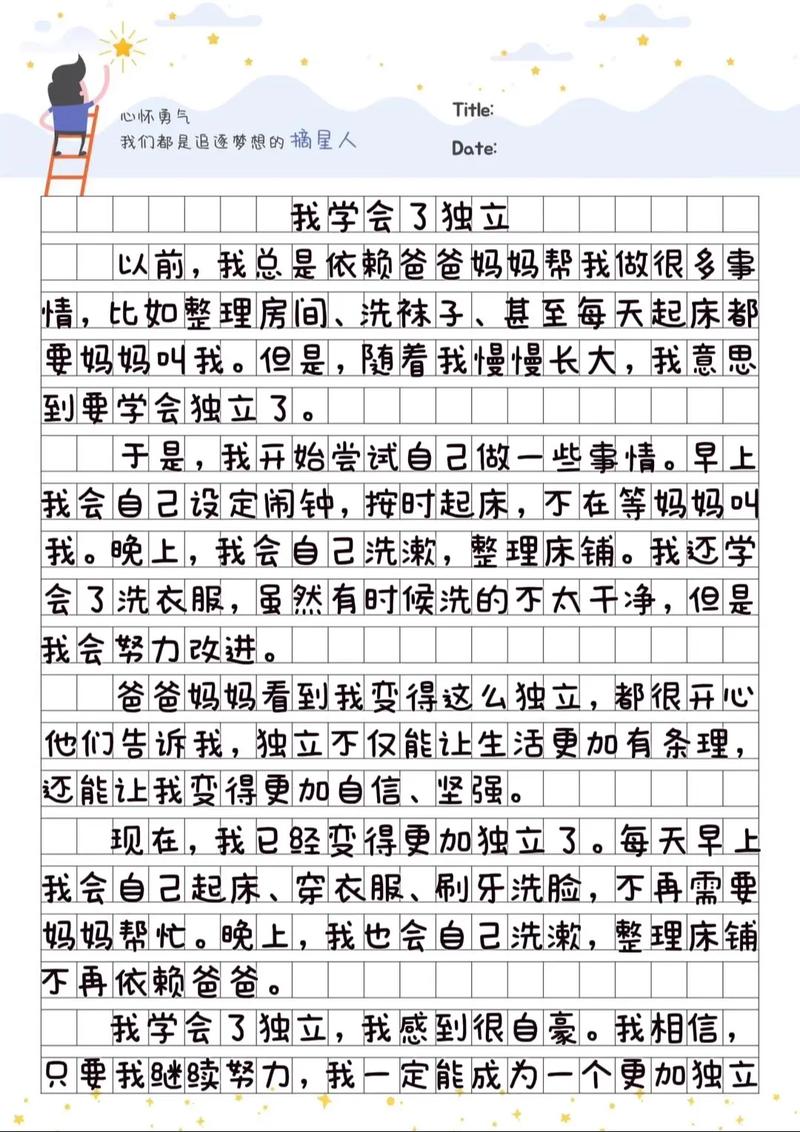 心怀勇气
我们都是追逐梦想的 摘星人
Title:
Date:
我学会了独立
以前，我总是依赖爸爸妈妈帮我做很多事
情，比如整理房间、洗袜子、甚至每天起床都
要妈妈叫我。但是，随着我慢慢长大，我意思
到要学会独立了。
于是，我开始尝试自己做一些事情。早上
我会自己设定闹钟，按时起床，不在等妈妈叫
我。晚上，我会自己洗漱，整理床铺。我还学
会了洗衣服，虽然有时候洗的不太干净，但是
我会努力改进。
爸爸妈妈看到我变得这么独立，都很开心
他们告诉我，独立不仅能让生活更加有条理，
还能让我变得更加自信、坚强。
现在，我已经变得更加独立了。每天早上
我会自己起床、穿衣服、刷牙洗脸，不再需要
妈妈帮忙。晚上，我也会自己洗漱，整理床铺
不再依赖爸爸。
我学会了独立，我感到很自豪。我相信，
只要我继续努力，我一定能成为一个更加独立